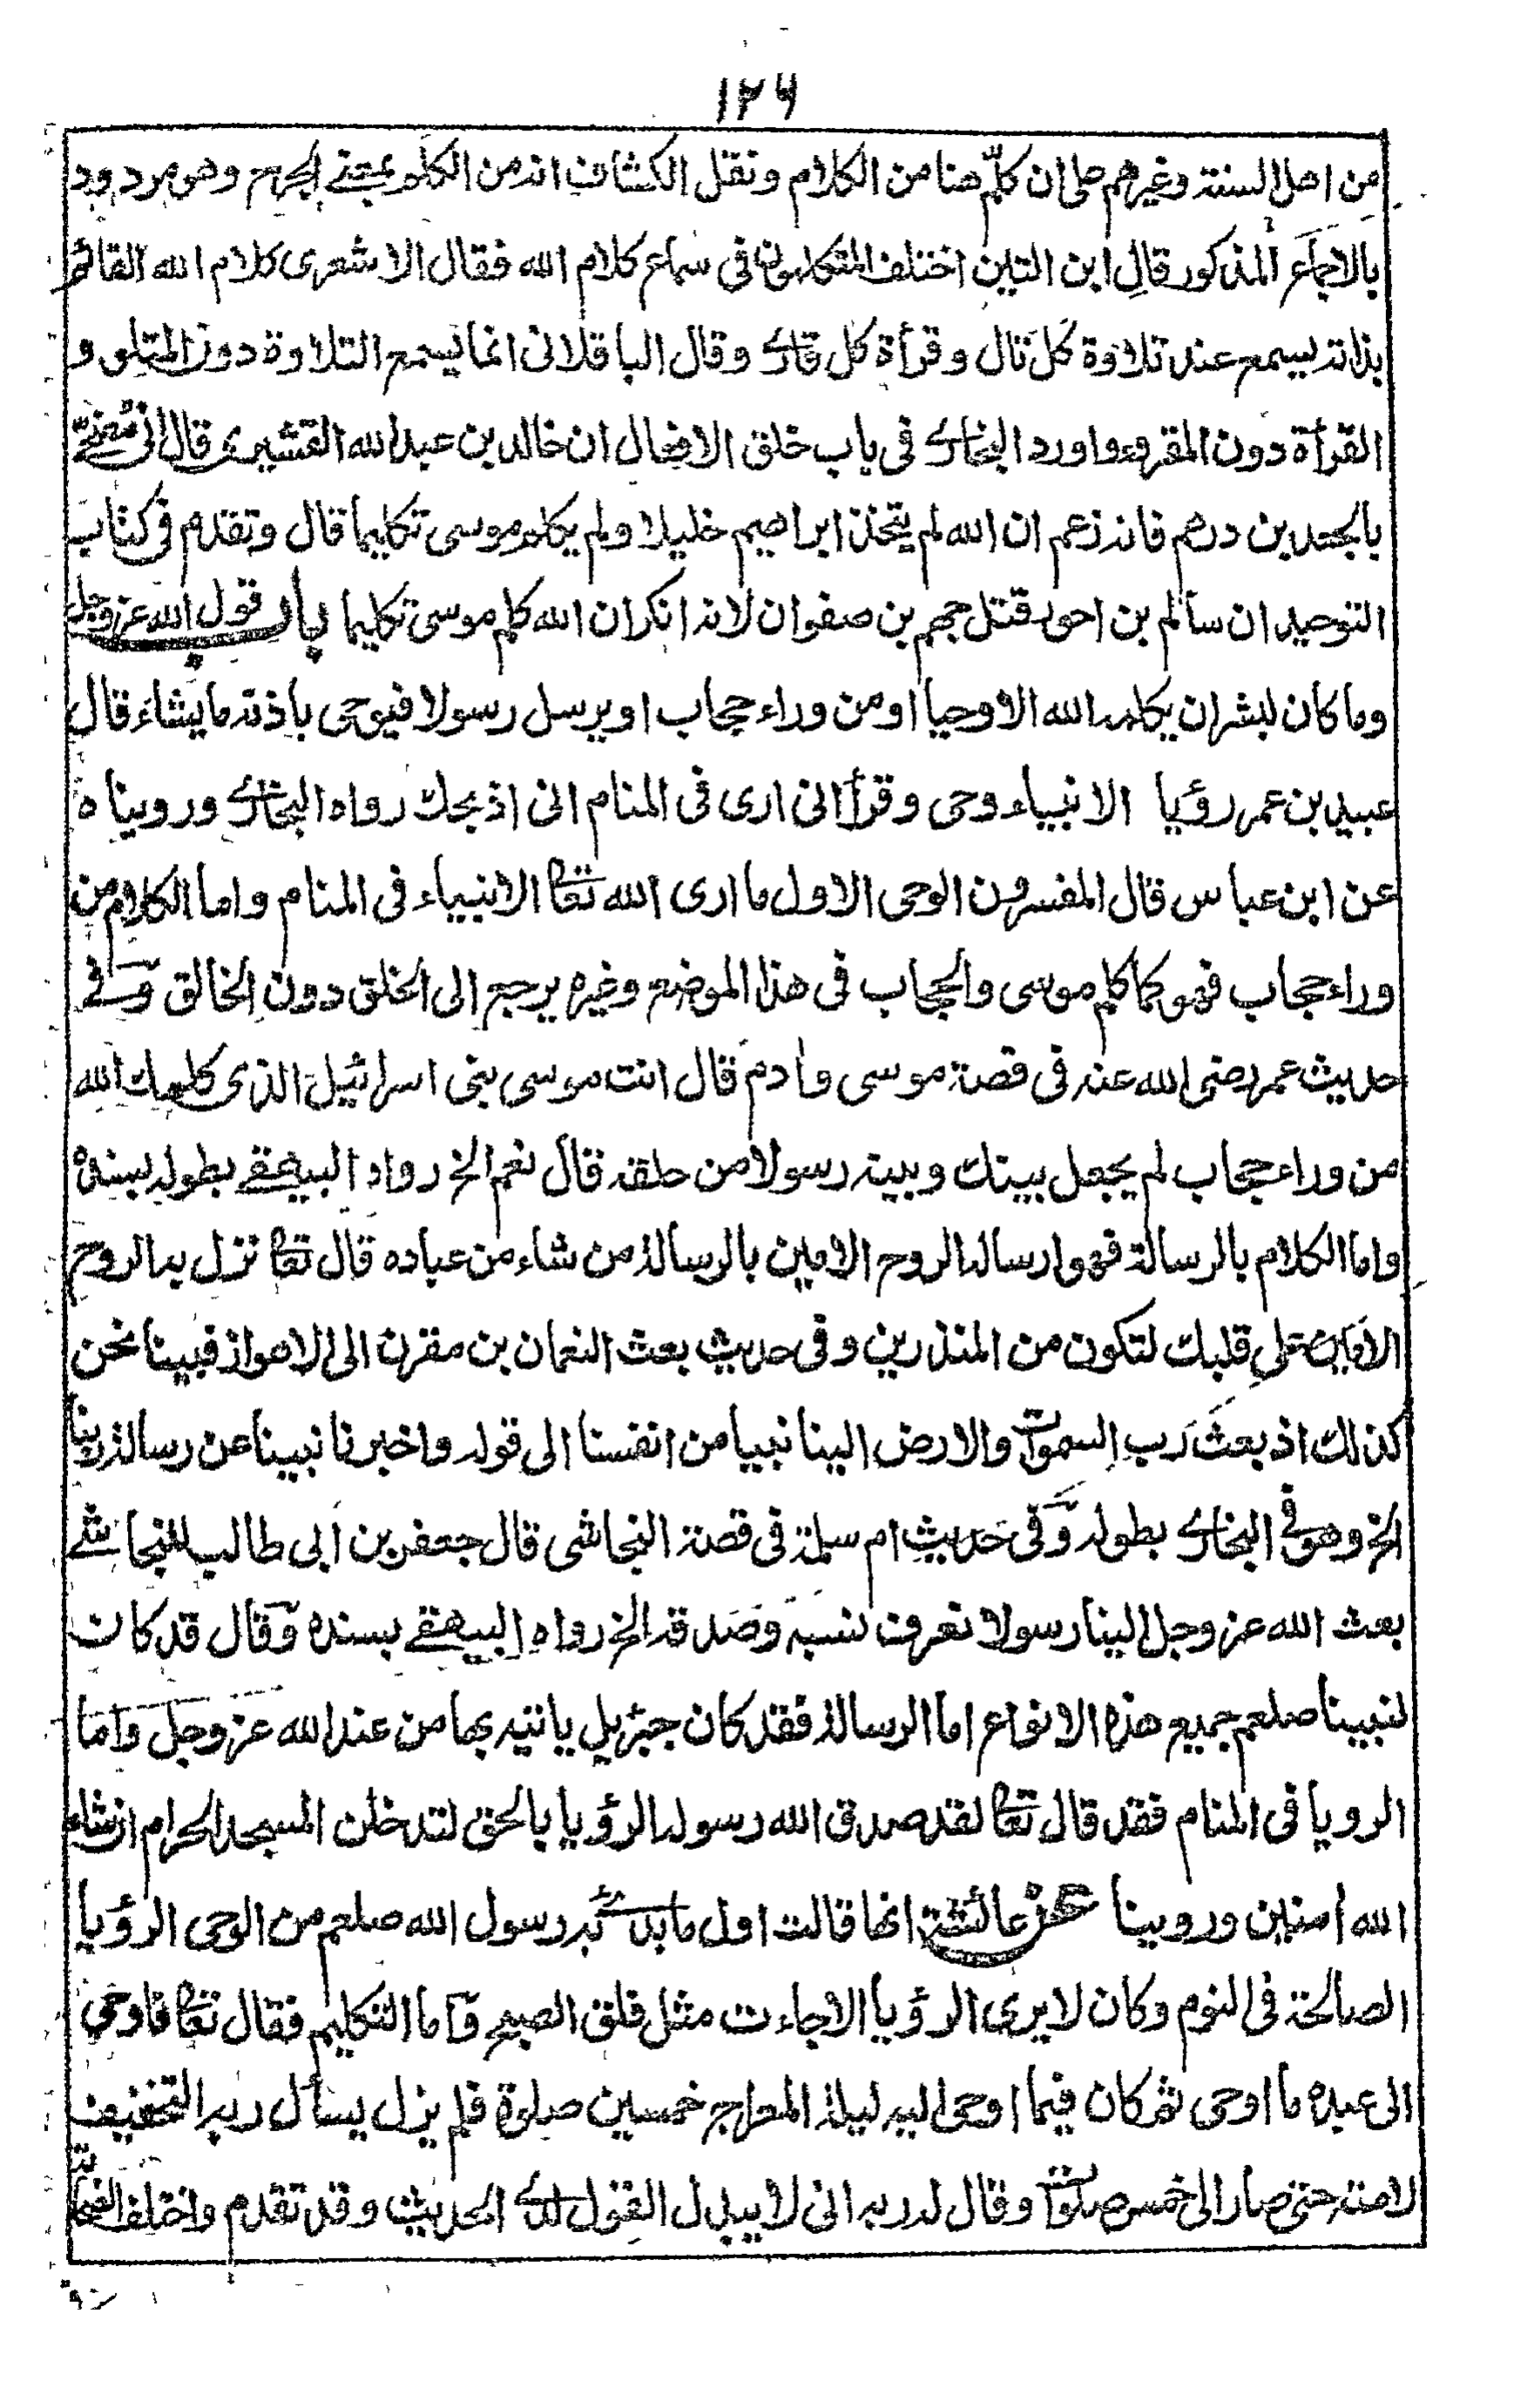 ۱۲۶
من اهل السنة وغيرهم على ان كلّم هنا من الكلام ونقل الكشاف انه من الكلم بمعنے الجرح وهو مردود
بالاجماع المذكور قال ابن التين اختلف المتكلمون فى سماع كلام الله فقال الاشعرى كلام الله القائم
بذاته يسمع عند تلاوة كل تال وقرأة كل قارے وقال الباقلانى انما يسمع التلاوة دون المتلو و
القرأة دون المقروء واورد البخارے فى باب خلق الافعال ان خالد بن عبد الله القشيرى قال انى مضحّ
بالجعد بن درهم فانه زعم ان الله لم يتخذ ابراهيم خليلا ولم يكلم موسى تكليما قال وتقدم فى كتاب
التوحيد ان سالم بن احوز قتل جهم بن صفوان لانه انكر ان الله كلم موسى تكليما باب قول الله عز وجل
وما كان لبشر ان يكلمه الله الا وحيا او من وراء حجاب او يرسل رسولا فيوحى باذنه ما يشاء قال
عبيد بن عمر رؤيا الانبياء وحى وقرأ انى ارى فى المنام انى اذبحك رواه البخارے وروينا ه
عن ابن عباس قال المفسرون الوحى الاول ما ارى الله تعا الانبياء فى المنام واما الكلام من
وراء حجاب فهو كما كلم موسى والحجاب فى هذا الموضع وغيره يرجع الى الخلق دون الخالق وفے
حديث عمر رضى الله عنه فى قصة موسى وادم قال انت موسى بنى اسرائيل الذى كلمك الله
من وراء حجاب لم يجعل بينك وبينه رسولا من خلقه قال نعم الخ رواه البيهقے بطوله بسنده
واما الكلام بالرسالة فهو ارساله الروح الامين بالرسالة من شاء من عباده قال تعا نزل به الروح
الامين على قلبك لتكون من المنذرين وفى حديث بعث النعمان بن مقرن الى الاهواز فبينا نحن
كذلك اذ بعث رب السموات والارض الينا نبيا من انفسنا الى قوله واخبرنا نبينا عن رسالة ربنا
الخ وهو فى البخارے بطوله وفى حديث ام سلمة فى قصة النجاشى قال جعفر بن ابى طالب للنجاشے
بعث الله عز وجل الينا رسولا نعرف نسبه وصدقه الخ رواه البيهقے بسنده وقال قد كان
لنبينا صلعم جميع هذه الانواع اما الرسالة فقد كان جبرئيل ياتيه بها من عند الله عز وجل واما
الرويا فى المنام فقد قال تعا لقد صدق الله رسوله الرؤيا بالحق لتدخلن المسجد الحرام ان شاء
الله امنين وروينا عن عائشة انها قالت اول ما بدئ به رسول الله صلعم من الوحى الرؤيا
الصالحة فى النوم وكان لا يرى الرؤيا الا جاءت مثل فلق الصبح واما التكليم فقال تعا فاوحى
الى عبده ما اوحى ثم كان فيما اوحى اليه ليلة المعراج خمسين صلوة فلم يزل يسأل ربه التخفيف
لامته حتى صار الى خمس صلوات وقال له ربه انى لا يبدل القول لدے الحديث وقد تقدم واختلف